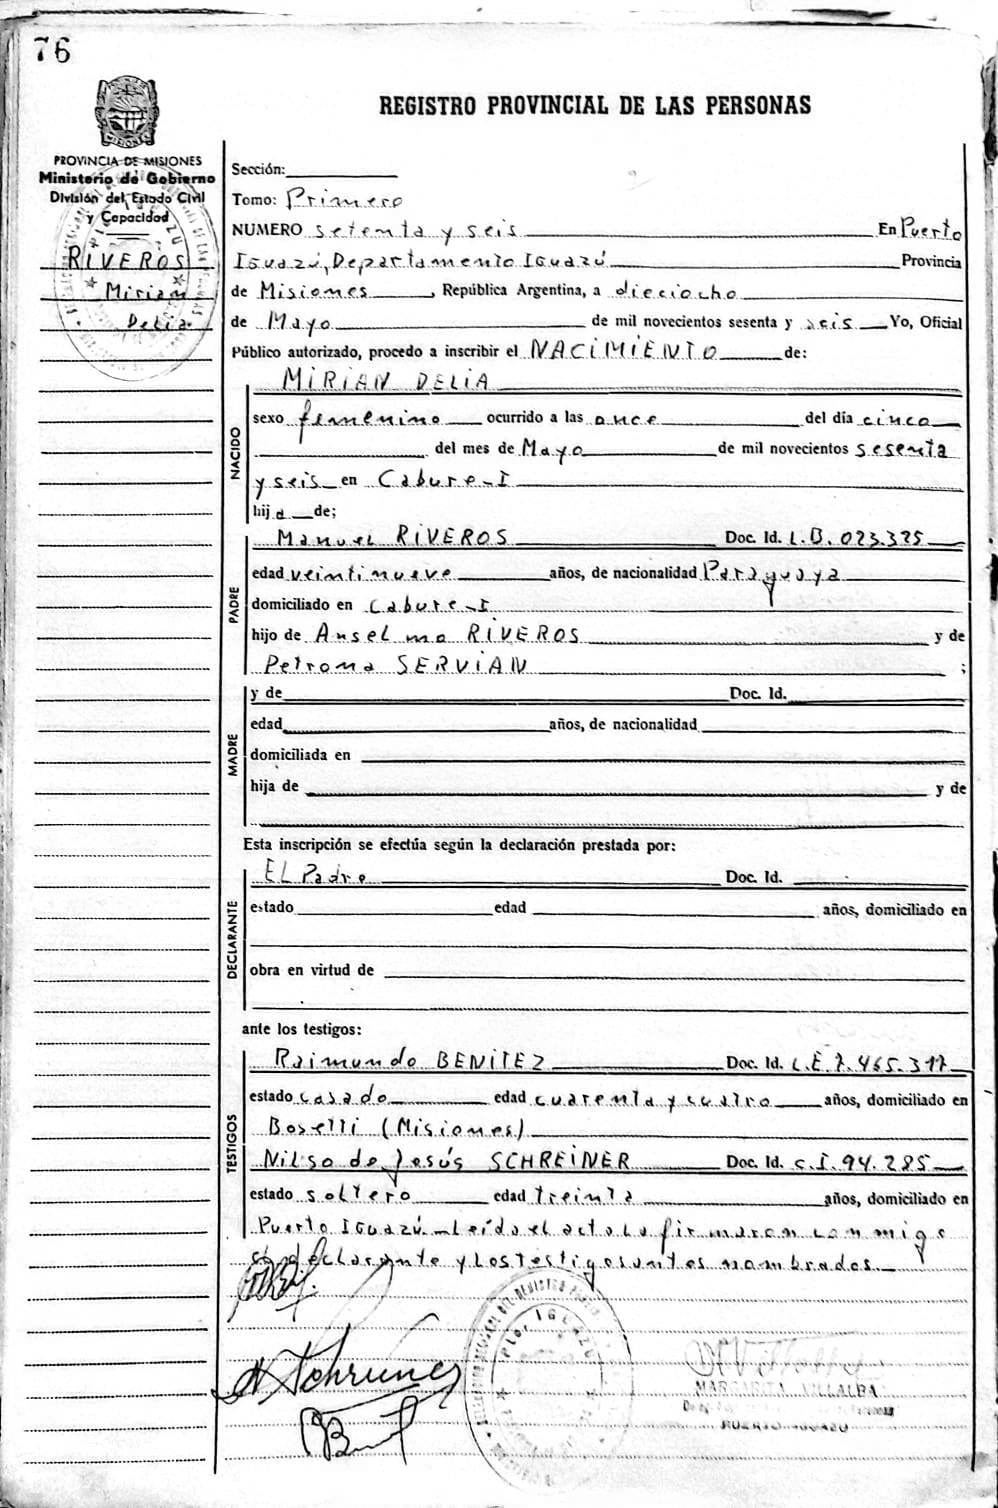 76
MISIONES
PROVINCIA DE MISIONES
Ministerio de Gobierno
División del Estado Civil
y Capacidad
RIVEROS
Mirian
Delia
REGISTRO PROVINCIAL DE LAS PERSONAS
Sección:
Tomo: Primero
NUMERO setenta y seis En Puerto
Iguazú, Departamento Iguazú Provincia
de Misiones, República Argentina, a dieciocho
de Mayo de mil novecientos sesenta y seis Yo, Oficial
Público autorizado, procedo a inscribir el NACIMIENTO de:
MIRIAN DELIA
NACIDO
sexo femenino ocurrido a las once del día cinco
del mes de Mayo de mil novecientos sesenta
y seis en Cabure-I
hija de;
PADRE
Manuel RIVEROS Doc. Id. L.B. 023.325
edad veintinueve años, de nacionalidad Paraguaya
domiciliado en Cabure-I
hijo de Anselmo RIVEROS y de
Petrona SERVIAN ;
MADRE
y de Doc. Id.
edad años, de nacionalidad
domiciliada en
hija de y de
Esta inscripción se efectúa según la declaración prestada por:
DECLARANTE
EL Padre Doc. Id.
estado edad años, domiciliado en
obra en virtud de
ante los testigos:
TESTIGOS
Raimundo BENITEZ Doc. Id. L.E. 7.465.317
estado casado edad cuarenta y cuatro años, domiciliado en
Bosetti (Misiones)
Nilso de Jesús SCHREINER Doc. Id. C.I. 94.285
estado soltero edad treinta años, domiciliado en
Puerto Iguazú. Leída el acta la firmaron conmigo
el declarante y los testigos antes nombrados.
Pto. IGUAZU
MARGARITA VILLALBA
PUERTO IGUAZU